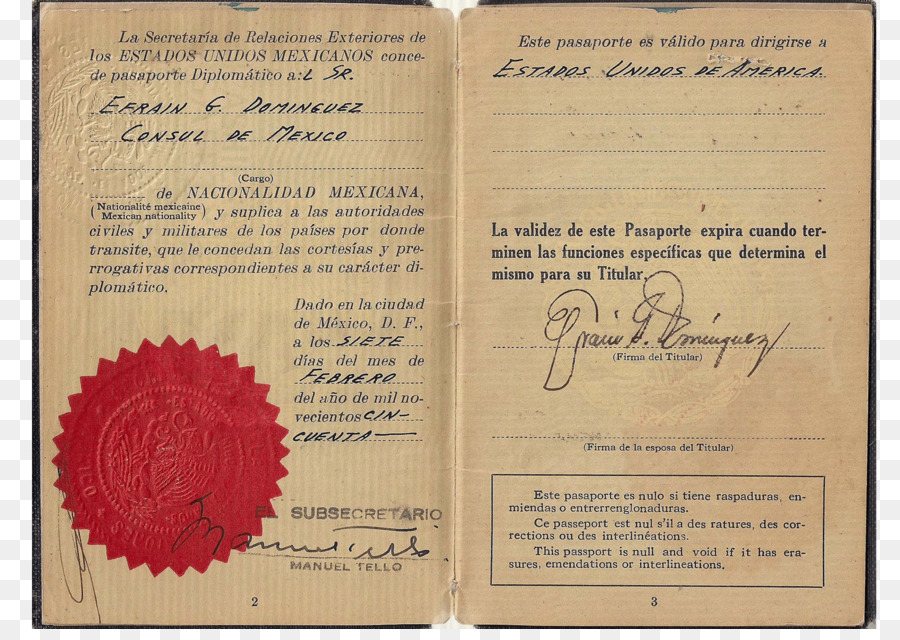 La Secretaría de Relaciones Exteriores de
los ESTADOS UNIDOS MEXICANOS conce-
de pasaporte Diplomático a:L SR.
EFRAIN G. DOMINGUEZ
CONSUL DE MEXICO
(Cargo)
de NACIONALIDAD MEXICANA,
(Nationalité mexicaine
Mexican nationality) y suplica a las autoridades
civiles y militares de los países por donde
transite, que le concedan las cortesías y pre-
rrogativas correspondientes a su carácter di-
plomático.
Dado en la ciudad
de México, D. F.,
a los SIETE
días del mes de
FEBRERO
del año de mil no-
vecientos CIN-
CUENTA
EL SUBSECRETARIO
Manuel Tello
MANUEL TELLO
2
Este pasaporte es válido para dirigirse a
ESTADOS UNIDOS DE AMERICA.
La validez de este Pasaporte expira cuando ter-
minen las funciones específicas que determina el
mismo para su Titular.
Efrain G. Domínguez
(Firma del Titular)
(Firma de la esposa del Titular)
Este pasaporte es nulo si tiene raspaduras, en-
miendas o entrerrenglonaduras.
Ce passeport est nul s'il a des ratures, des cor-
rections ou des interlinéations.
This passport is null and void if it has era-
sures, emendations or interlineations.
3